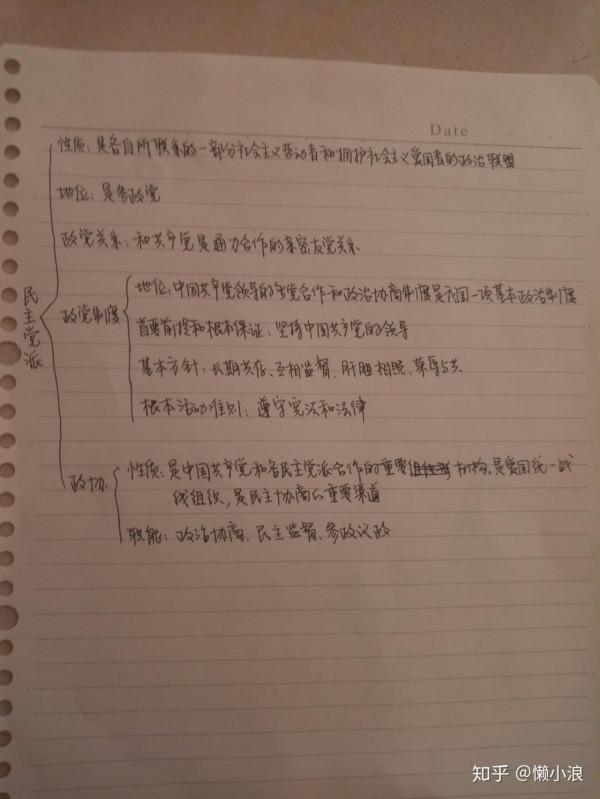 Date
性质：是各自所联系的一部分社会主义劳动者和拥护社会主义爱国者的政治联盟
地位：是参政党
政党关系：和共产党是通力合作的亲密友党关系
民主党派
政党制度
地位：中国共产党领导的多党合作和政治协商制度是我国一项基本政治制度
首要前提和根本保证：坚持中国共产党的领导
基本方针：长期共存、互相监督、肝胆相照、荣辱与共
根本活动准则：遵守宪法和法律
政协
性质：是中国共产党和各民主党派合作的重要机构，是爱国统一战
线组织，是民主协商的重要渠道
职能：政治协商、民主监督、参政议政
知乎 @懒小浪